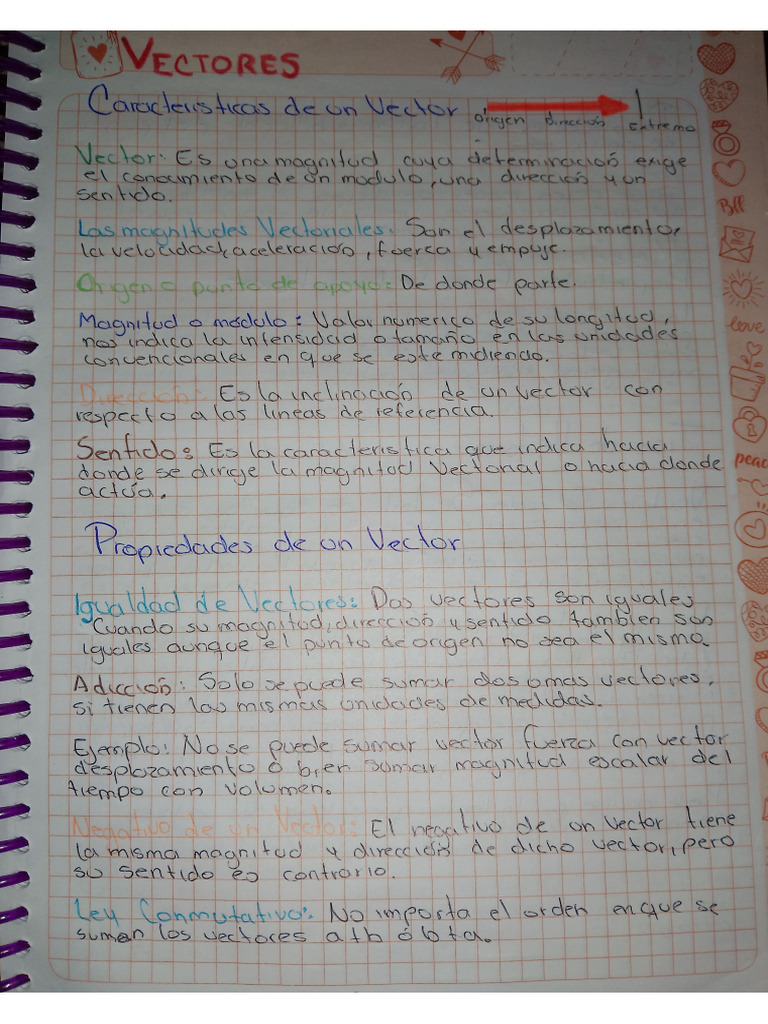 VECTORES
Caracteristicas de un Vector
origen dirección extremo
Vector: Es una magnitud cuya determinación exige
el conocimiento de un modulo, una dirección y un
sentido.
Las magnitudes Vectoriales: Son el desplazamiento,
la velocidad, aceleración, fuerza y empuje.
Origen o punto de apoyo: De donde parte.
Magnitud o módulo: Valor numerico de su longitud,
nos indica la intensidad o tamaño en las unidades
convencionales en que se este midiendo.
Dirección: Es la inclinación de un vector con
respecto a las lineas de referencia.
Sentido: Es la caracteristica que indica hacia
donde se dirige la magnitud Vectorial o hacia donde
actúa.
Propiedades de un Vector
Igualdad de Vectores: Dos vectores son iguales
Cuando su magnitud, dirección y sentido tambien son
iguales aunque el punto de origen no sea el mismo.
Adicción: Solo se puede sumar dos o mas vectores,
si tienen las mismas unidades de medidas.
Ejemplo: No se puede sumar vector fuerza con vector
desplazamiento o bien sumar magnitud escalar del
tiempo con volumen.
Negativo de un Vector: El negativo de un vector tiene
la misma magnitud y dirección de dicho vector, pero
su sentido es contrario.
Ley Conmutativa: No importa el orden en que se
suman los vectores a+b ó b+a.
BFF
love
peac